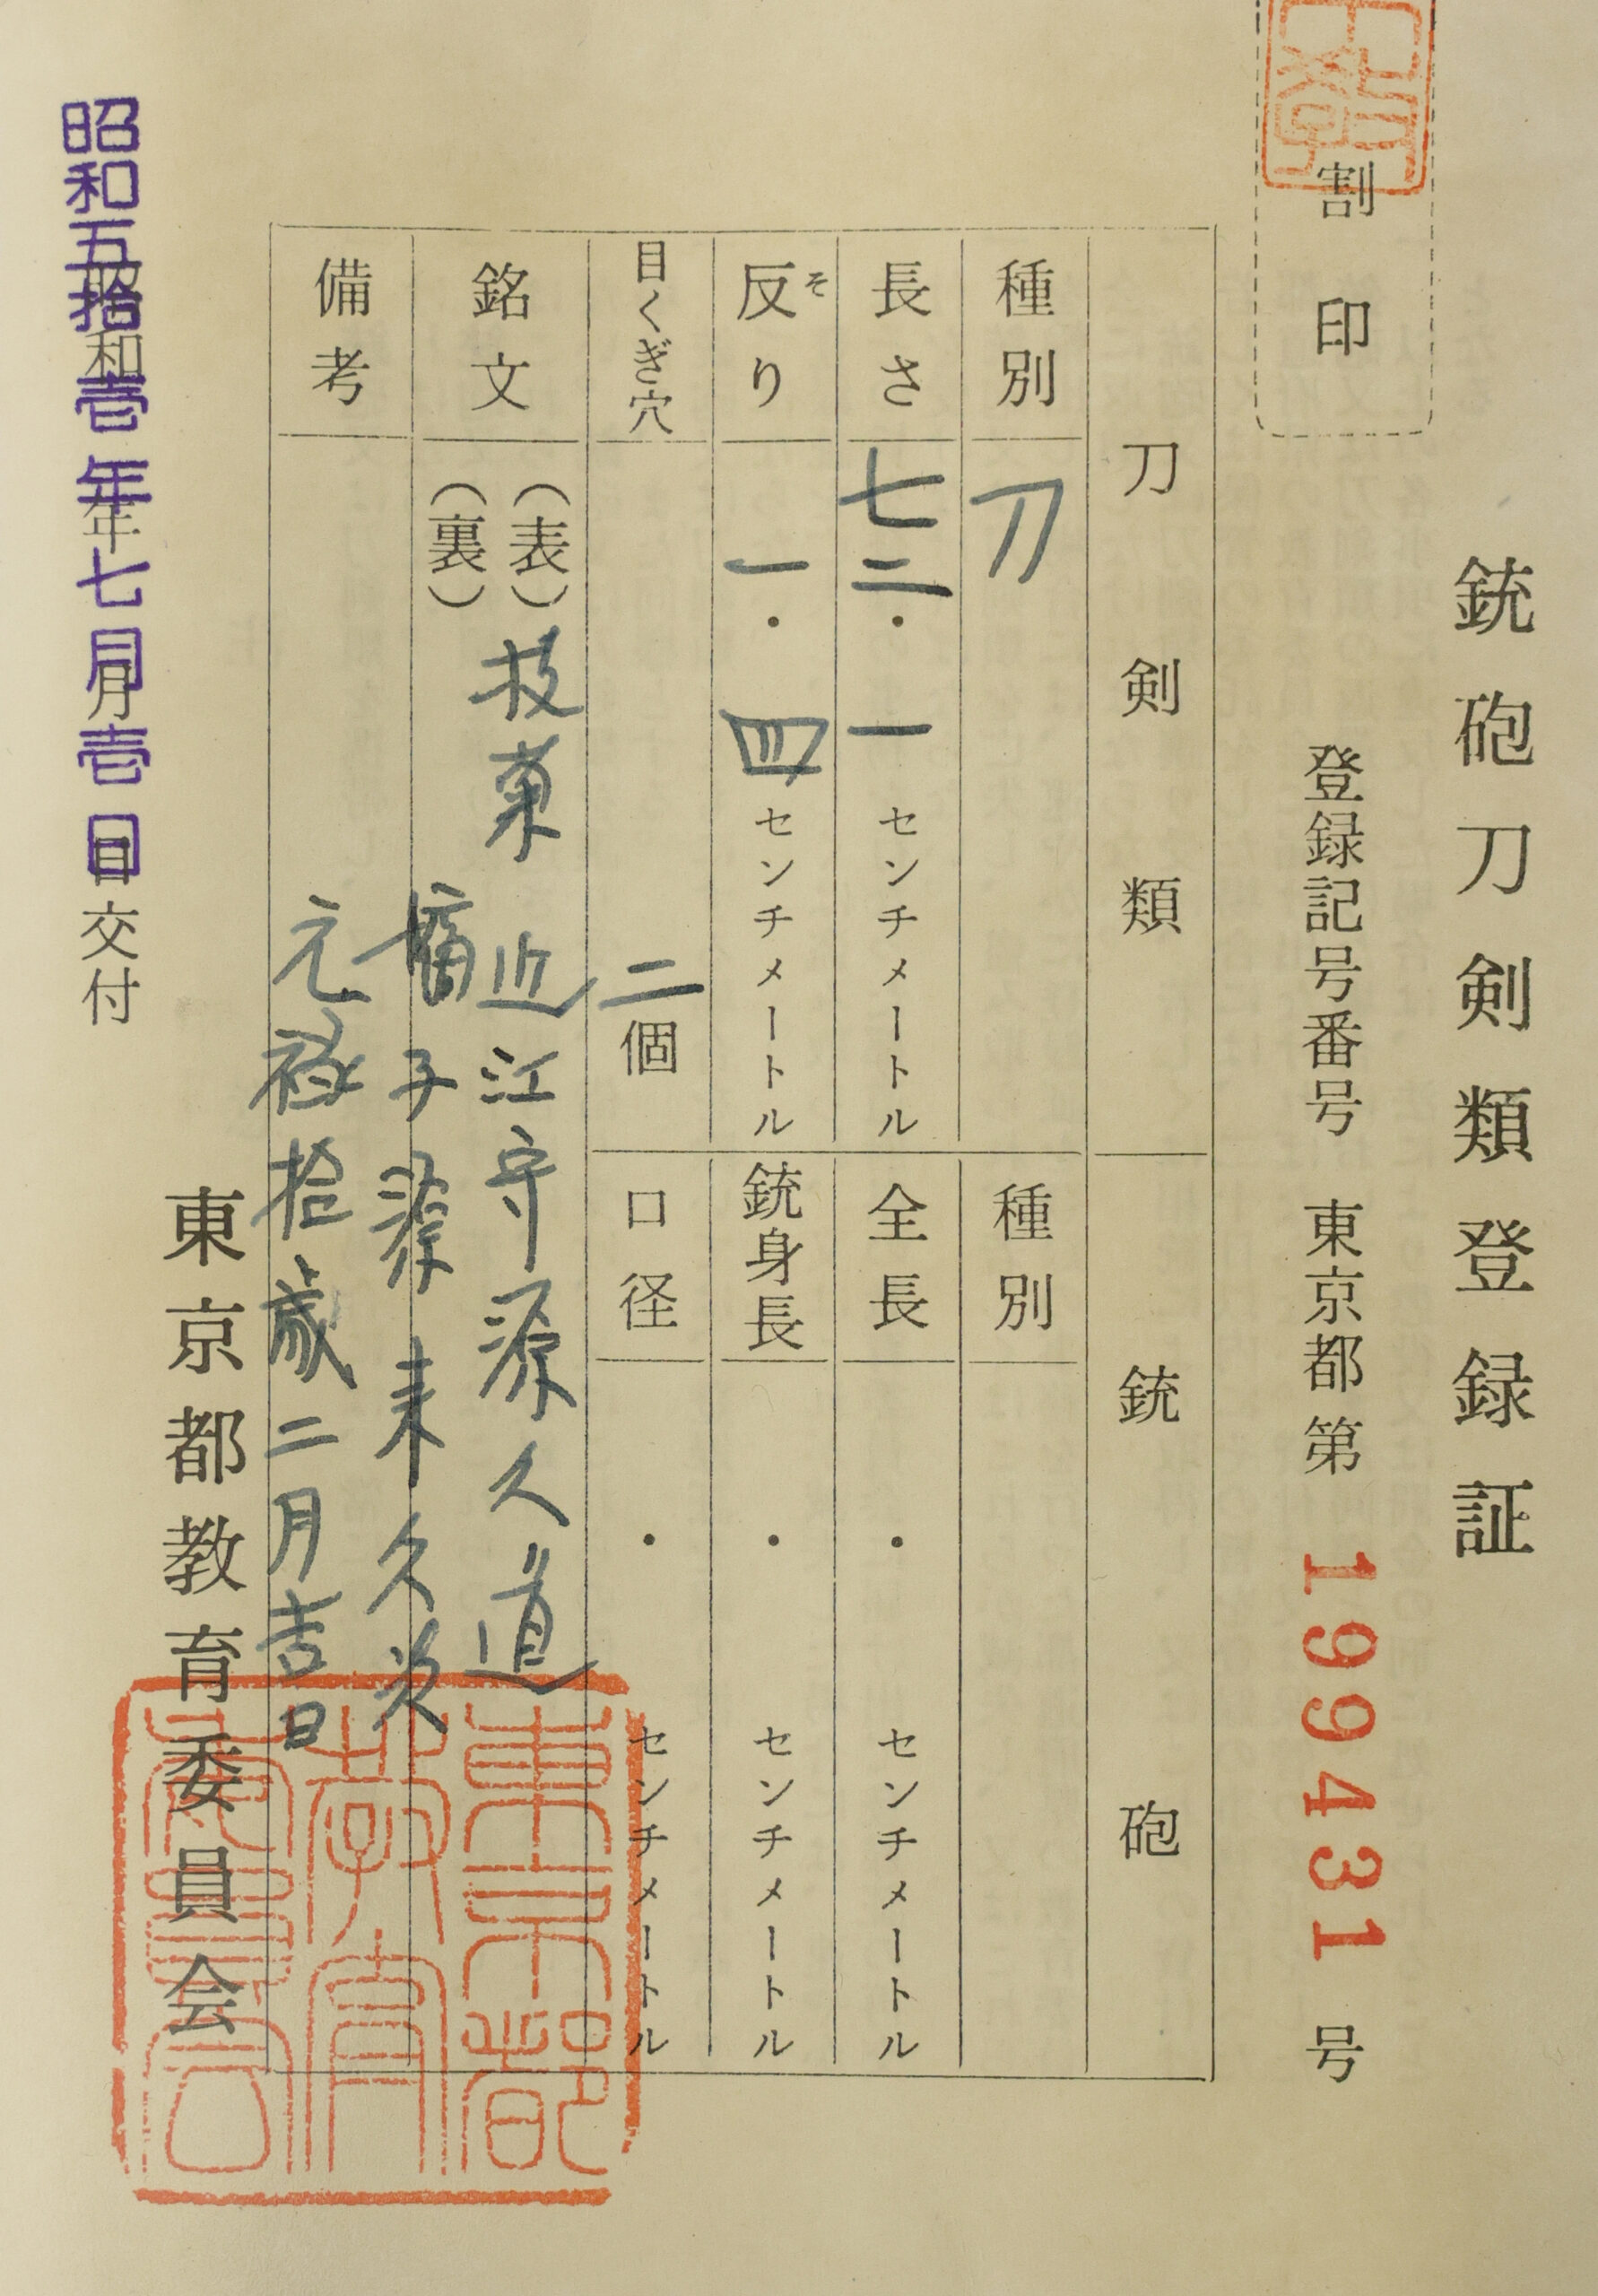 銃砲刀剣類登録証
割印
登録記号番号 東京都第 199431 号
刀剣類
銃砲
種別 刀
長さ 七二・一センチメートル
反り 一・四センチメートル
そ
目くぎ穴 二個
種別
全長 ・ センチメートル
銃身長 ・ センチメートル
口径 ・ センチメートル
銘文
(表) 枝菊 近江守源久道
(裏) 嫡子源来久次
元禄拾歳二月吉日
備考
東京都教育委員会
昭和五拾壱年七月壱日
昭和 年 月 日交付
東京都教育委員会